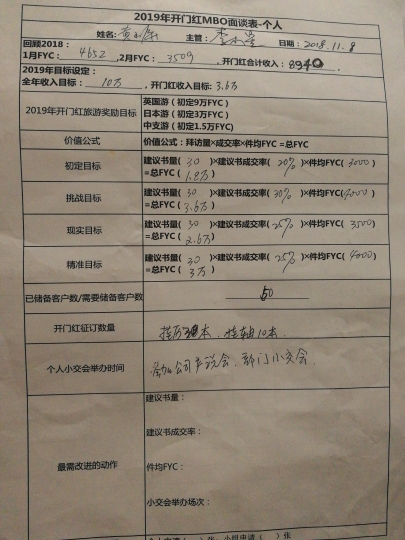 2019年开门红MBO面谈表-个人
姓名： 主管： 日期：2018.11.8
回顾2018：
1月FYC： 4652 ,2月FYC： 3509 ,开门红合计收入：8940
2019年目标设定：
全年收入目标：10万 ,开门红收入目标：3.6万
2019年开门红旅游奖励目标
英国游（初定9万FYC）
日本游（初定3万FYC）
中支游（初定1.5万FYC)
价值公式 价值公式：拜访量×成交率×件均FYC =总FYC
初定目标 建议书量( 30 )×建议书成交率( 20% )×件均FYC( 3000 )
=总FYC ( 1.8万 )
挑战目标 建议书量( 30 )×建议书成交率( 30% )×件均FYC( 4000 )
=总FYC ( 3.6万 )
现实目标 建议书量( 30 )×建议书成交率( 25% )×件均FYC( 3500 )
=总FYC ( 2.6万 )
精准目标 建议书量( 30 )×建议书成交率( 25% )×件均FYC( 4000 )
=总FYC ( 3万 )
已储备客户数/需要储备客户数 50
开门红征订数量 挂历 本，挂轴10本.
个人小交会举办时间 参加公司产说会、部门小交会
最需改进的动作
建议书量：
建议书成交率：
件均FYC：
小交会举办场次：